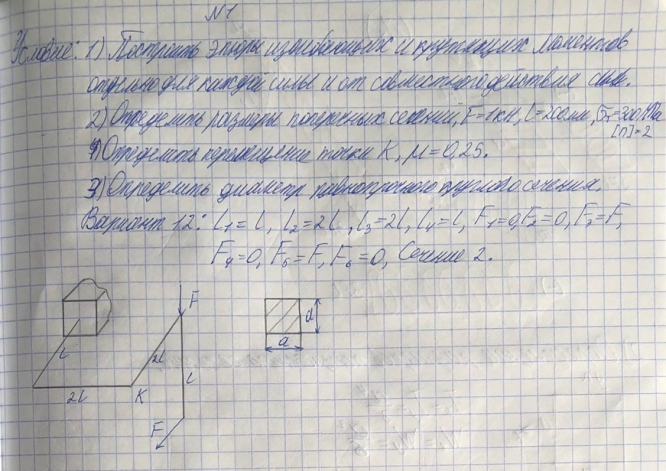 N1
Условие: 1) Построить эпюры изгибающих и крутящих моментов
отдельно для каждой силы и от совместного действия сил.
2) Определить размеры поперечных сечений, F=1кН, l=200мм, σт=300МПа
[n]=2
4) Определить перемещение точки K, μ=0,25.
3) Определить диаметр равнопрочного круглого сечения.
Вариант 12: l1=l, l2=2l, l3=2l, l4=l, F1=0, F2=0, F3=F,
F4=0, F5=F, F6=0, Сечение 2.
F
l
2l
l
d
a
2l
K
F